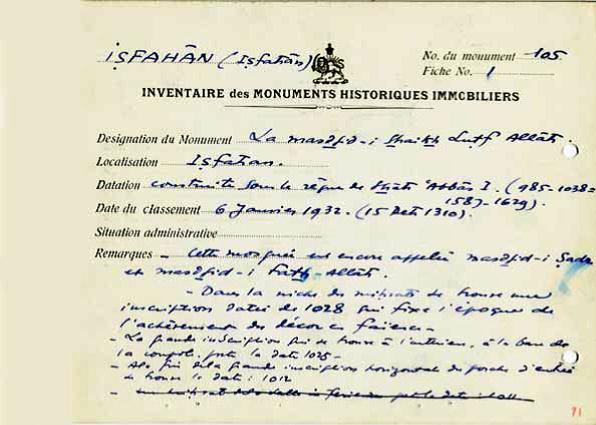 IṢFAHĀN (Iṣfahān)
No. du monument 105
Fiche No. 1
INVENTAIRE des MONUMENTS HISTORIQUES IMMOBILIERS
Designation du Monument La masdjid-i Shaikh Lutf Allāh.
Localisation Isfahan.
Datation construite sous le règne de Shāh 'Abbās I. (985-1038=
1587-1629).
Date du classement 6 Janvier 1932. (15 Deh 1310).
Situation administrative
Remarques - Cette mosquée est encore appelée masdjid-i Ṣadr
et masdjid-i Fatḥ-Allāh.
- Dans la niche du mihrab se trouve une
inscription datée de 1028 qui fixe l'époque de
l'achèvement du décor en faïence -
- La grande inscription qui se trouve à l'intérieur, à la base de
la coupole, porte la date 1025 -
- A la fin de la grande inscription horizontale du porche d'entrée
se trouve la date : 1012
91